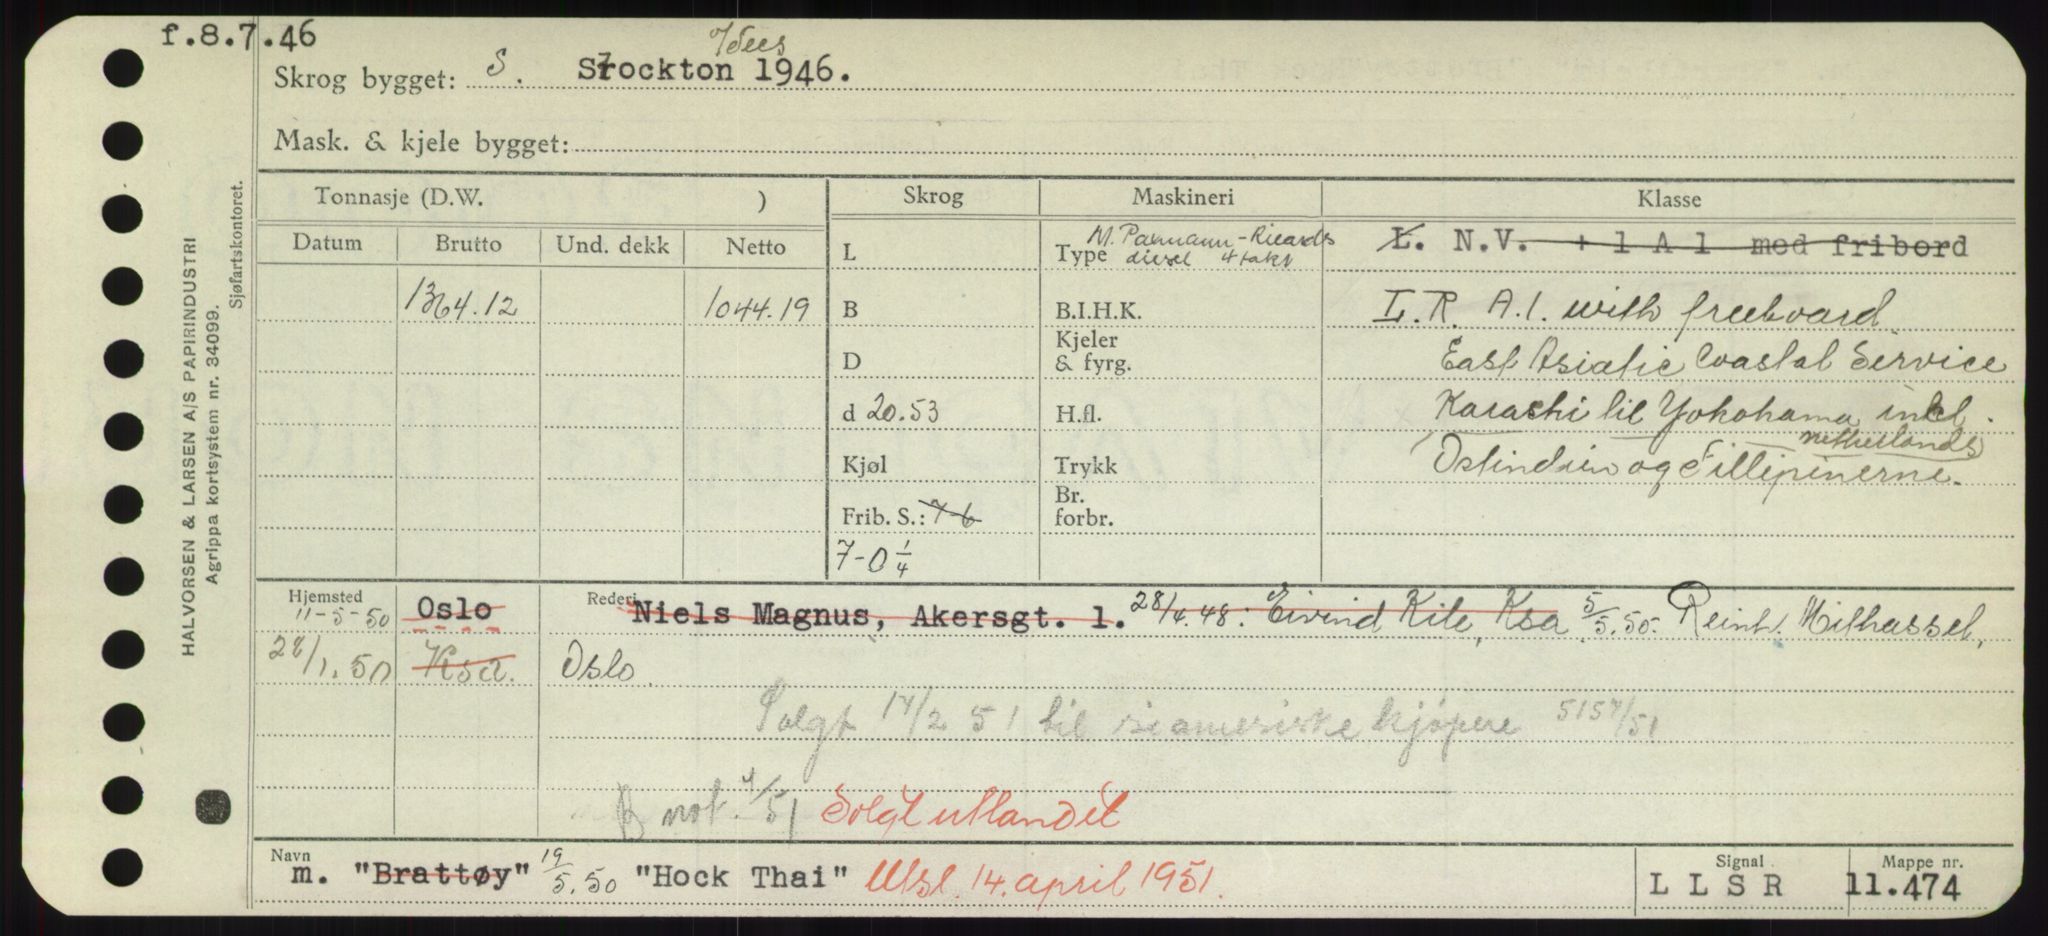 f.8.7.46
Skrog bygget: S. Stockton Tees 1946.
Mask. & kjele bygget:
Tonnasje (D.W. ) Skrog Maskineri Klasse
Datum Brutto Und. dekk Netto
L
Type M. Paxmann-Ricards
diesel 4 takt
L. N.V. + 1 A 1 med fribord
1364.12 1044.19
B B.I.H.K.
L.R. A.1. with freeboard
D Kjeler
& fyrg.
East Asiatic Coastal Service
d 20.53 H.fl.
Karachi til Yokohama inkl.
netherlands
Kjøl Trykk
Ostindien og Fillipinerne.
Frib. S.: 7-6 Br.
forbr.
7-0 1/4
Hjemsted Rederi
11-5-50 Oslo Niels Magnus, Akersgt. 1. 28/4.48. Eivind Kile, Ksa 5/5.50. Reinh. Mithassel,
28/1.50 Ksa. Oslo.
Solgt 14/2 51 til siamesiske kjøpere 5157/51
B not. 4/51 Solgt utlandet
Navn Signal Mappe nr.
m. "Brattøy" 19/5.50 "Hock Thai" Utsl. 14. april 1951. L L S R 11.474
HALVORSEN & LARSEN A/S PAPIRINDUSTRI
Agrippa kortsystem nr. 34099.
Sjøfartskontoret.